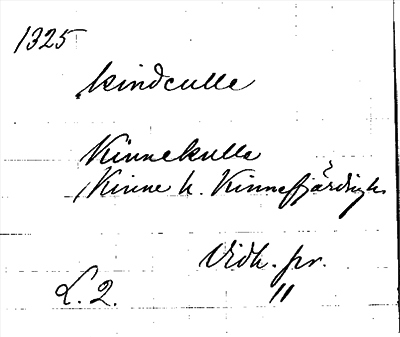 1325
kindculle
Kinnekulle
Kinne h. Kinnefjärdings
Vidh. pr.
L. 2. "